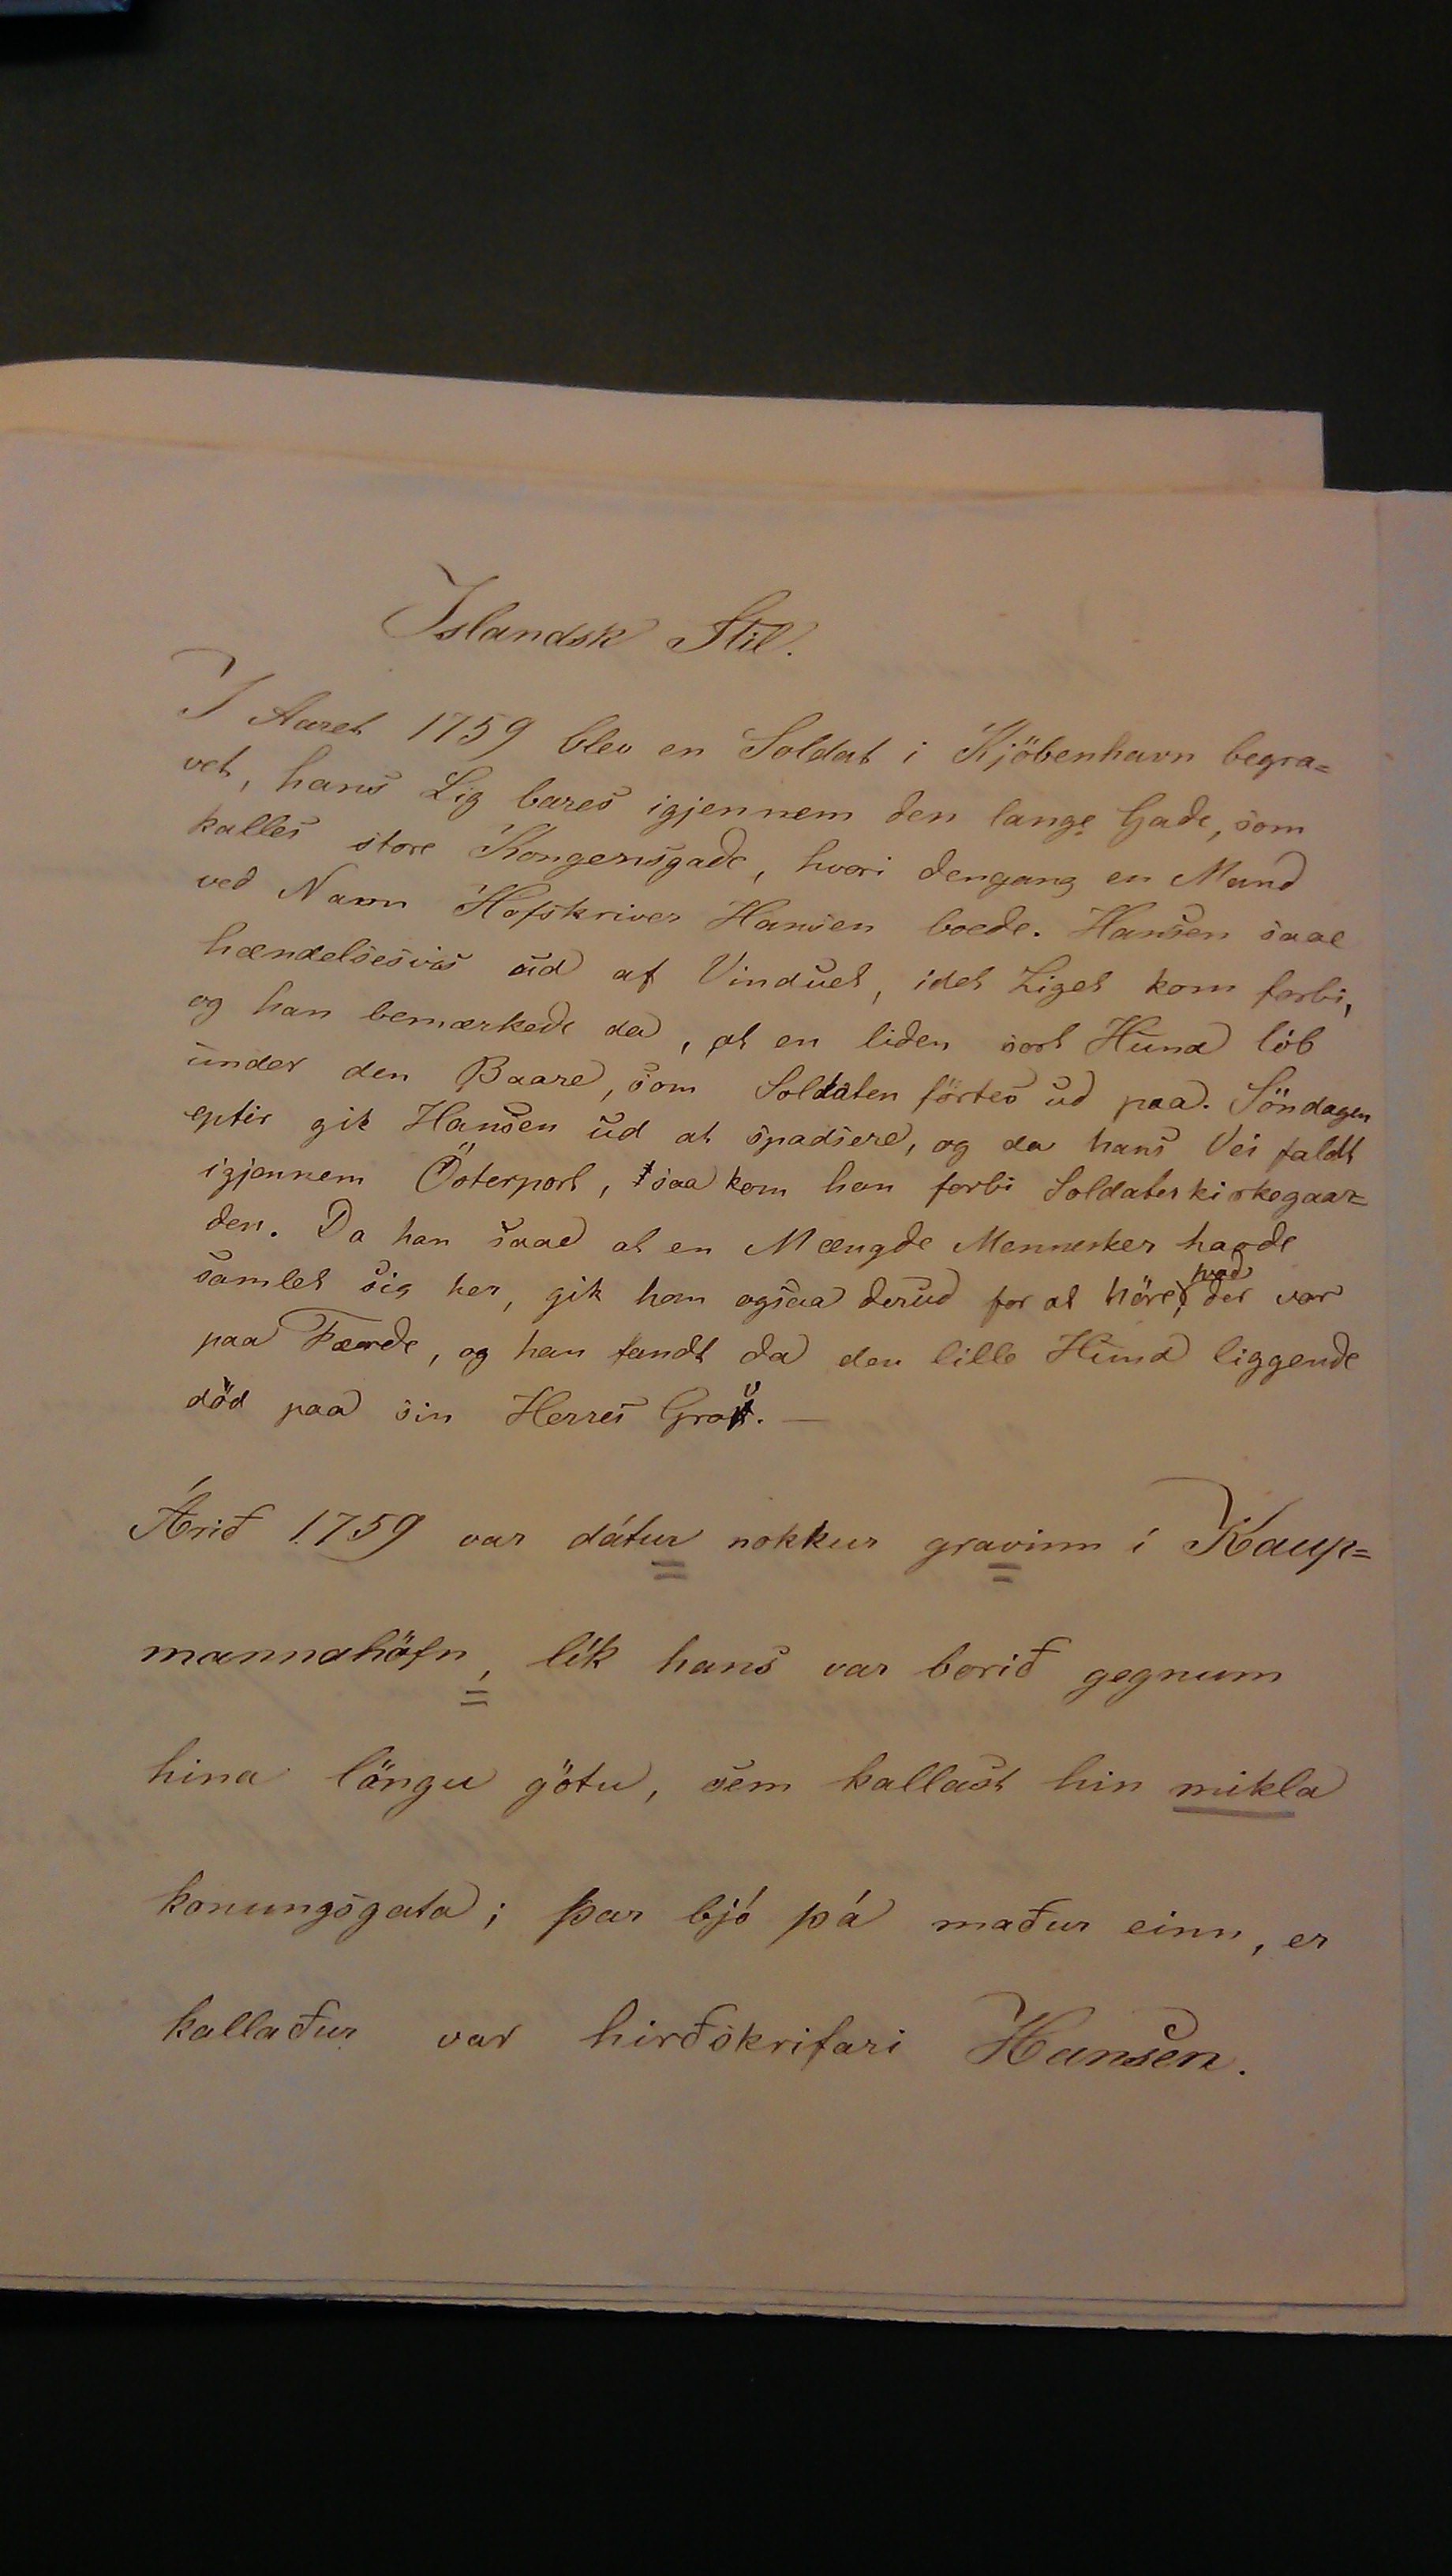 Islandsk Stil.
I Aaret 1759 blev en Soldat i Kjöbenhavn begra=
vet, hans Lig bares igjennem den lange Gade, som
kalles store Kongensgade, hvori dengang en Mand
ved Navn Hofskriver Hansen boede. Hansen saae
hændelsesvis ud af Vinduet, idet Liget kom forbi,
og han bemærkede da, at en liden sort Hund löb
under den Baare, som Soldaten förtes ud paa. Söndagen
eptir gik Hansen ud at spadsere, og da hans Vei faldt
igjennem Österport, saa kom han forbi Soldaterkirkegaar=
den. Da han saae at en Mængde Mennesker havde
samlet sig her, gik han ogsaa derud for at höre, hvad der var
paa Færde, og han fandt da den lille Hund liggende
död paa sin Herres Grav. —
Árið 1759 var dátur nokkur gravinn í Kaup=
mannahöfn, lík hans var borið gegnum
hina löngu götu, sem kallast hin mikla
konungsgata; þar bjó þá maður einn, er
kallaður var hirðskrifari Hansen.